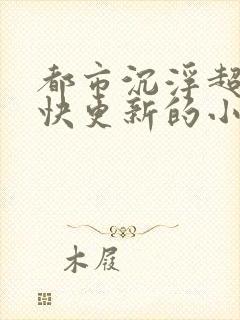 都市沉浮超
快更新的小
木屐